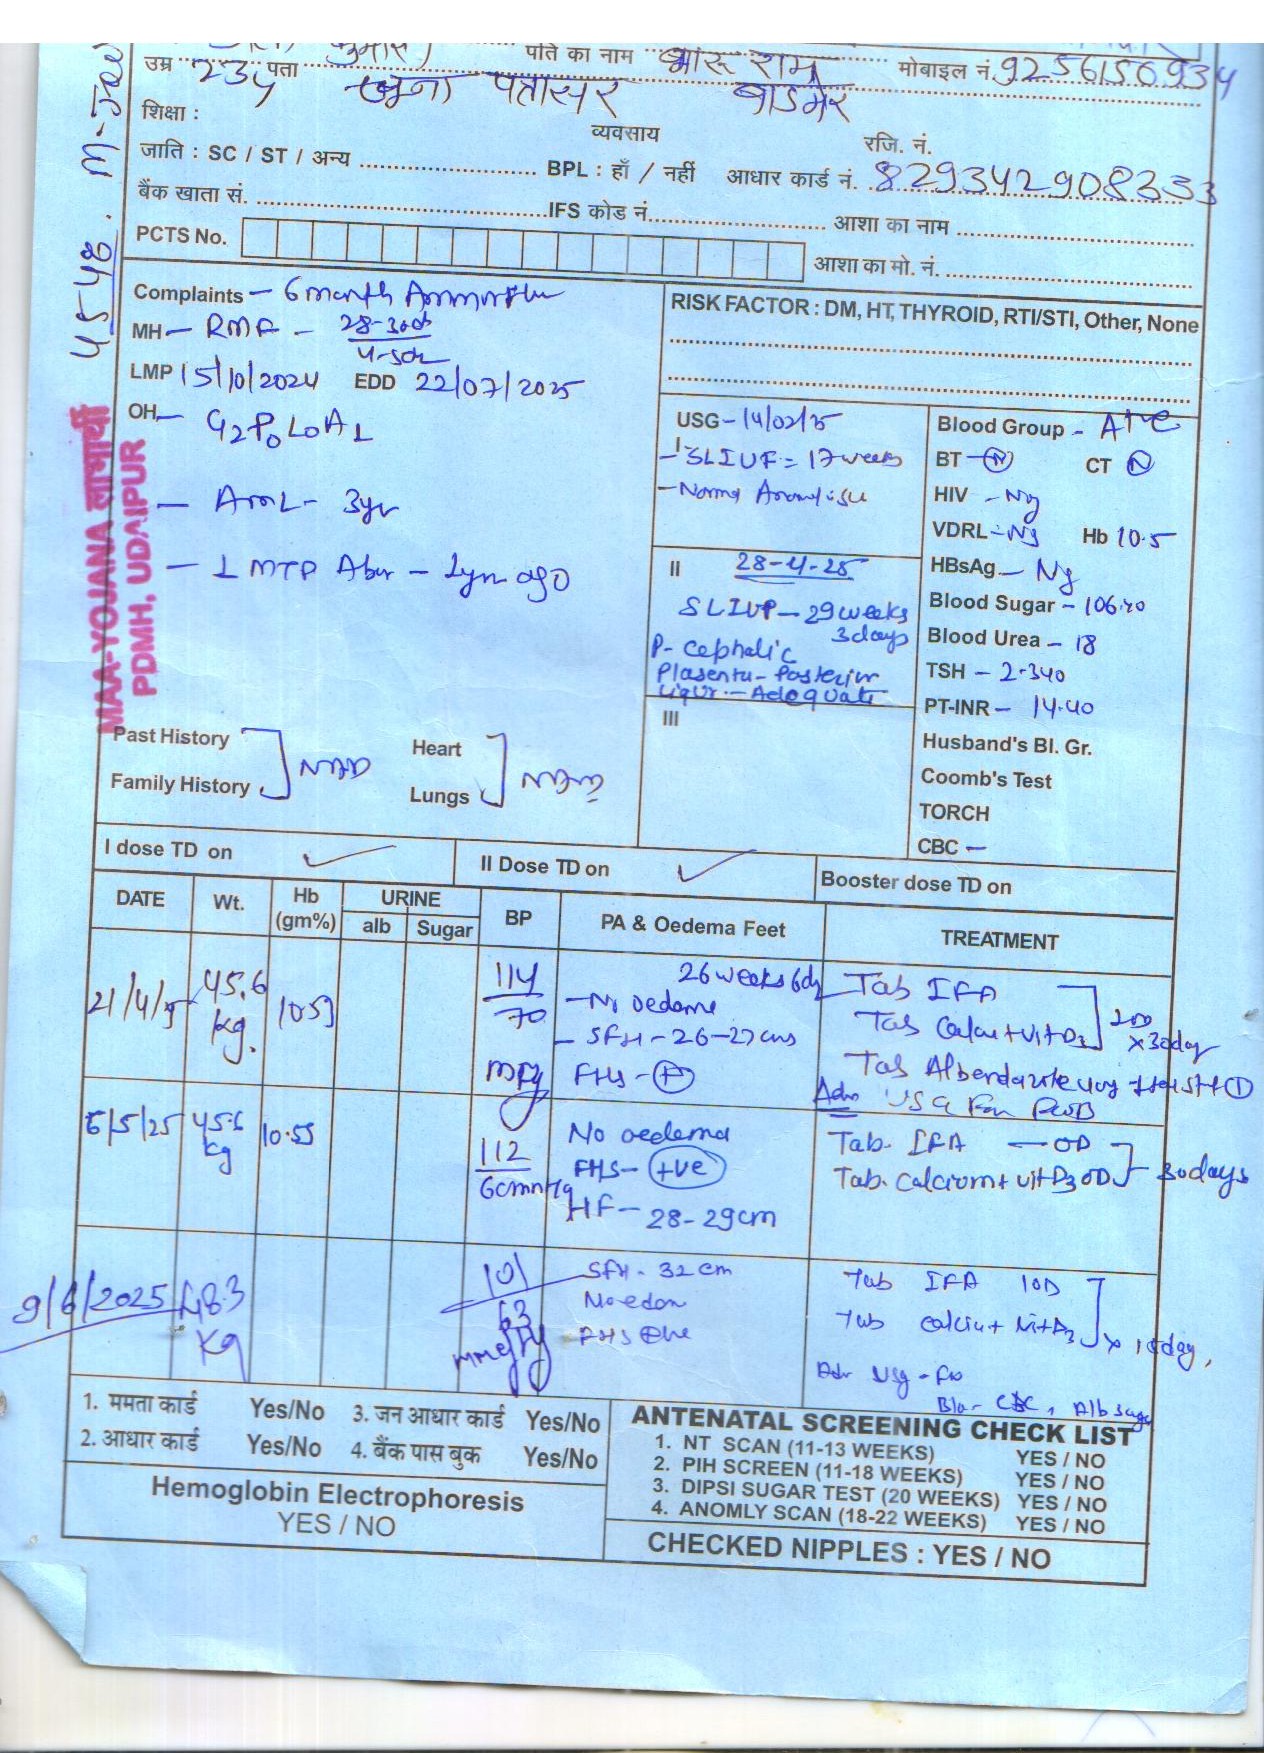 कुमारी पति का नाम भारू राम मोबाइल नं. 9256150934
उम्र 23y पता जूना पत्रासर बाडमेर
शिक्षा : व्यवसाय रजि. नं.
जाति : SC / ST / अन्य BPL : हाँ / नहीं आधार कार्ड नं. 829342908333
बैंक खाता सं. IFS कोड नं. आशा का नाम
PCTS No. आशा का मो. नं.
4548
MAA-YOJANA लाभार्थी
PDMH, UDAIPUR
Complaints – 6 month
MH – RMF – 28-30d
4-5d
LMP 15/10/2024 EDD 22/07/2025
OH – G2P0L0A1
– AML – 3yr
– 1 MTP – 1yr ago
Past History NAD
Family History
Heart
Lungs
RISK FACTOR : DM, HT, THYROID, RTI/STI, Other, None
USG – 14/02/25
I
– SLIUF = 17 weeks
– Normal
II 28-4-25
SLIUP – 29 weeks
3 days
P- cephalic
Plasenta – Posterior
Liqur – Adequate
III
Blood Group – A+ve
BT – N CT N
HIV – Ng
VDRL – Ng Hb 10.5
HBsAg – Ng
Blood Sugar – 106.40
Blood Urea – 18
TSH – 2.340
PT-INR – 14.40
Husband's Bl. Gr.
Coomb's Test
TORCH
CBC –
I dose TD on ✓ II Dose TD on ✓ Booster dose TD on
DATE Wt. Hb (gm%) URINE alb Sugar BP PA & Oedema Feet TREATMENT
21/4/25 45.6 kg. 10.5 114/70
26 weeks 6d
– No oedema
– SFH – 26-27 cms
FHS – +
Tab IFA
Tab Calci + vit D3
x 30 day
Tab Albendazole
Adv USG For
5/5/25 45.6 kg 10.55 112/60 mmHg
No oedema
FHS – +ve
HF – 28-29 cm
Tab. IFA – OD
Tab. calcium + vit D3 OD
30 days
9/6/2025 48.3 Kg 101/63
SFH – 32 cm
FHS +ve
Tab IFA 1OD
Tab calcium + Vit D3
Adv USG
CBC, Alb
1. ममता कार्ड Yes/No 3. जन आधार कार्ड Yes/No
2. आधार कार्ड Yes/No 4. बैंक पास बुक Yes/No
Hemoglobin Electrophoresis
YES / NO
ANTENATAL SCREENING CHECK LIST
1. NT SCAN (11-13 WEEKS) YES / NO
2. PIH SCREEN (11-18 WEEKS) YES / NO
3. DIPSI SUGAR TEST (20 WEEKS) YES / NO
4. ANOMLY SCAN (18-22 WEEKS) YES / NO
CHECKED NIPPLES : YES / NO